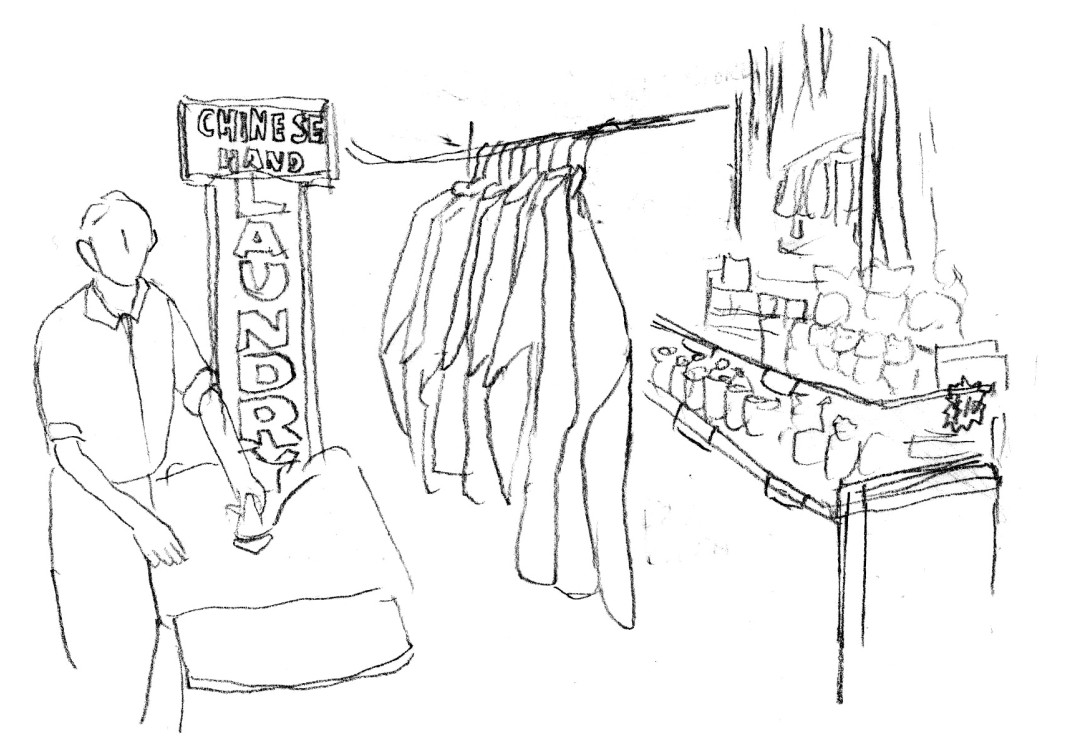 CHINESE
HAND
LAUNDRY